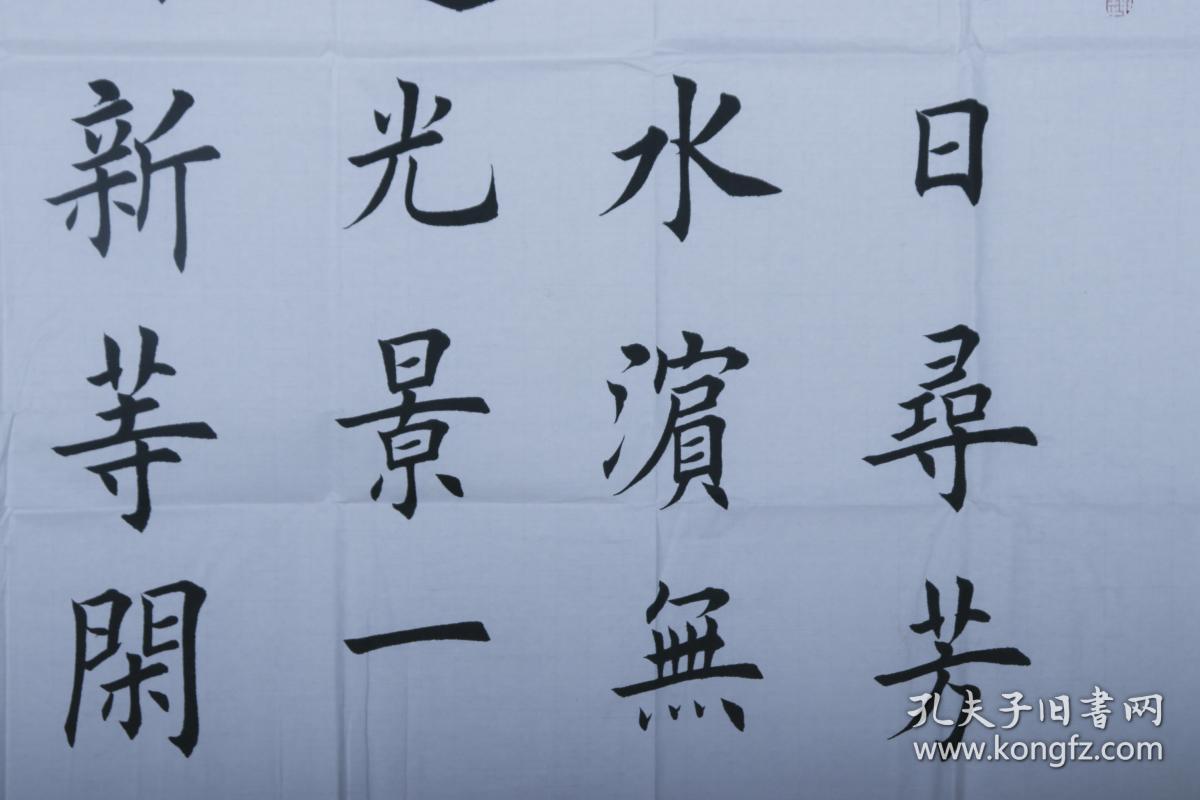 日尋芳
水濵無
光景一
新䓁閑
孔夫子旧書网
www.kongfz.com